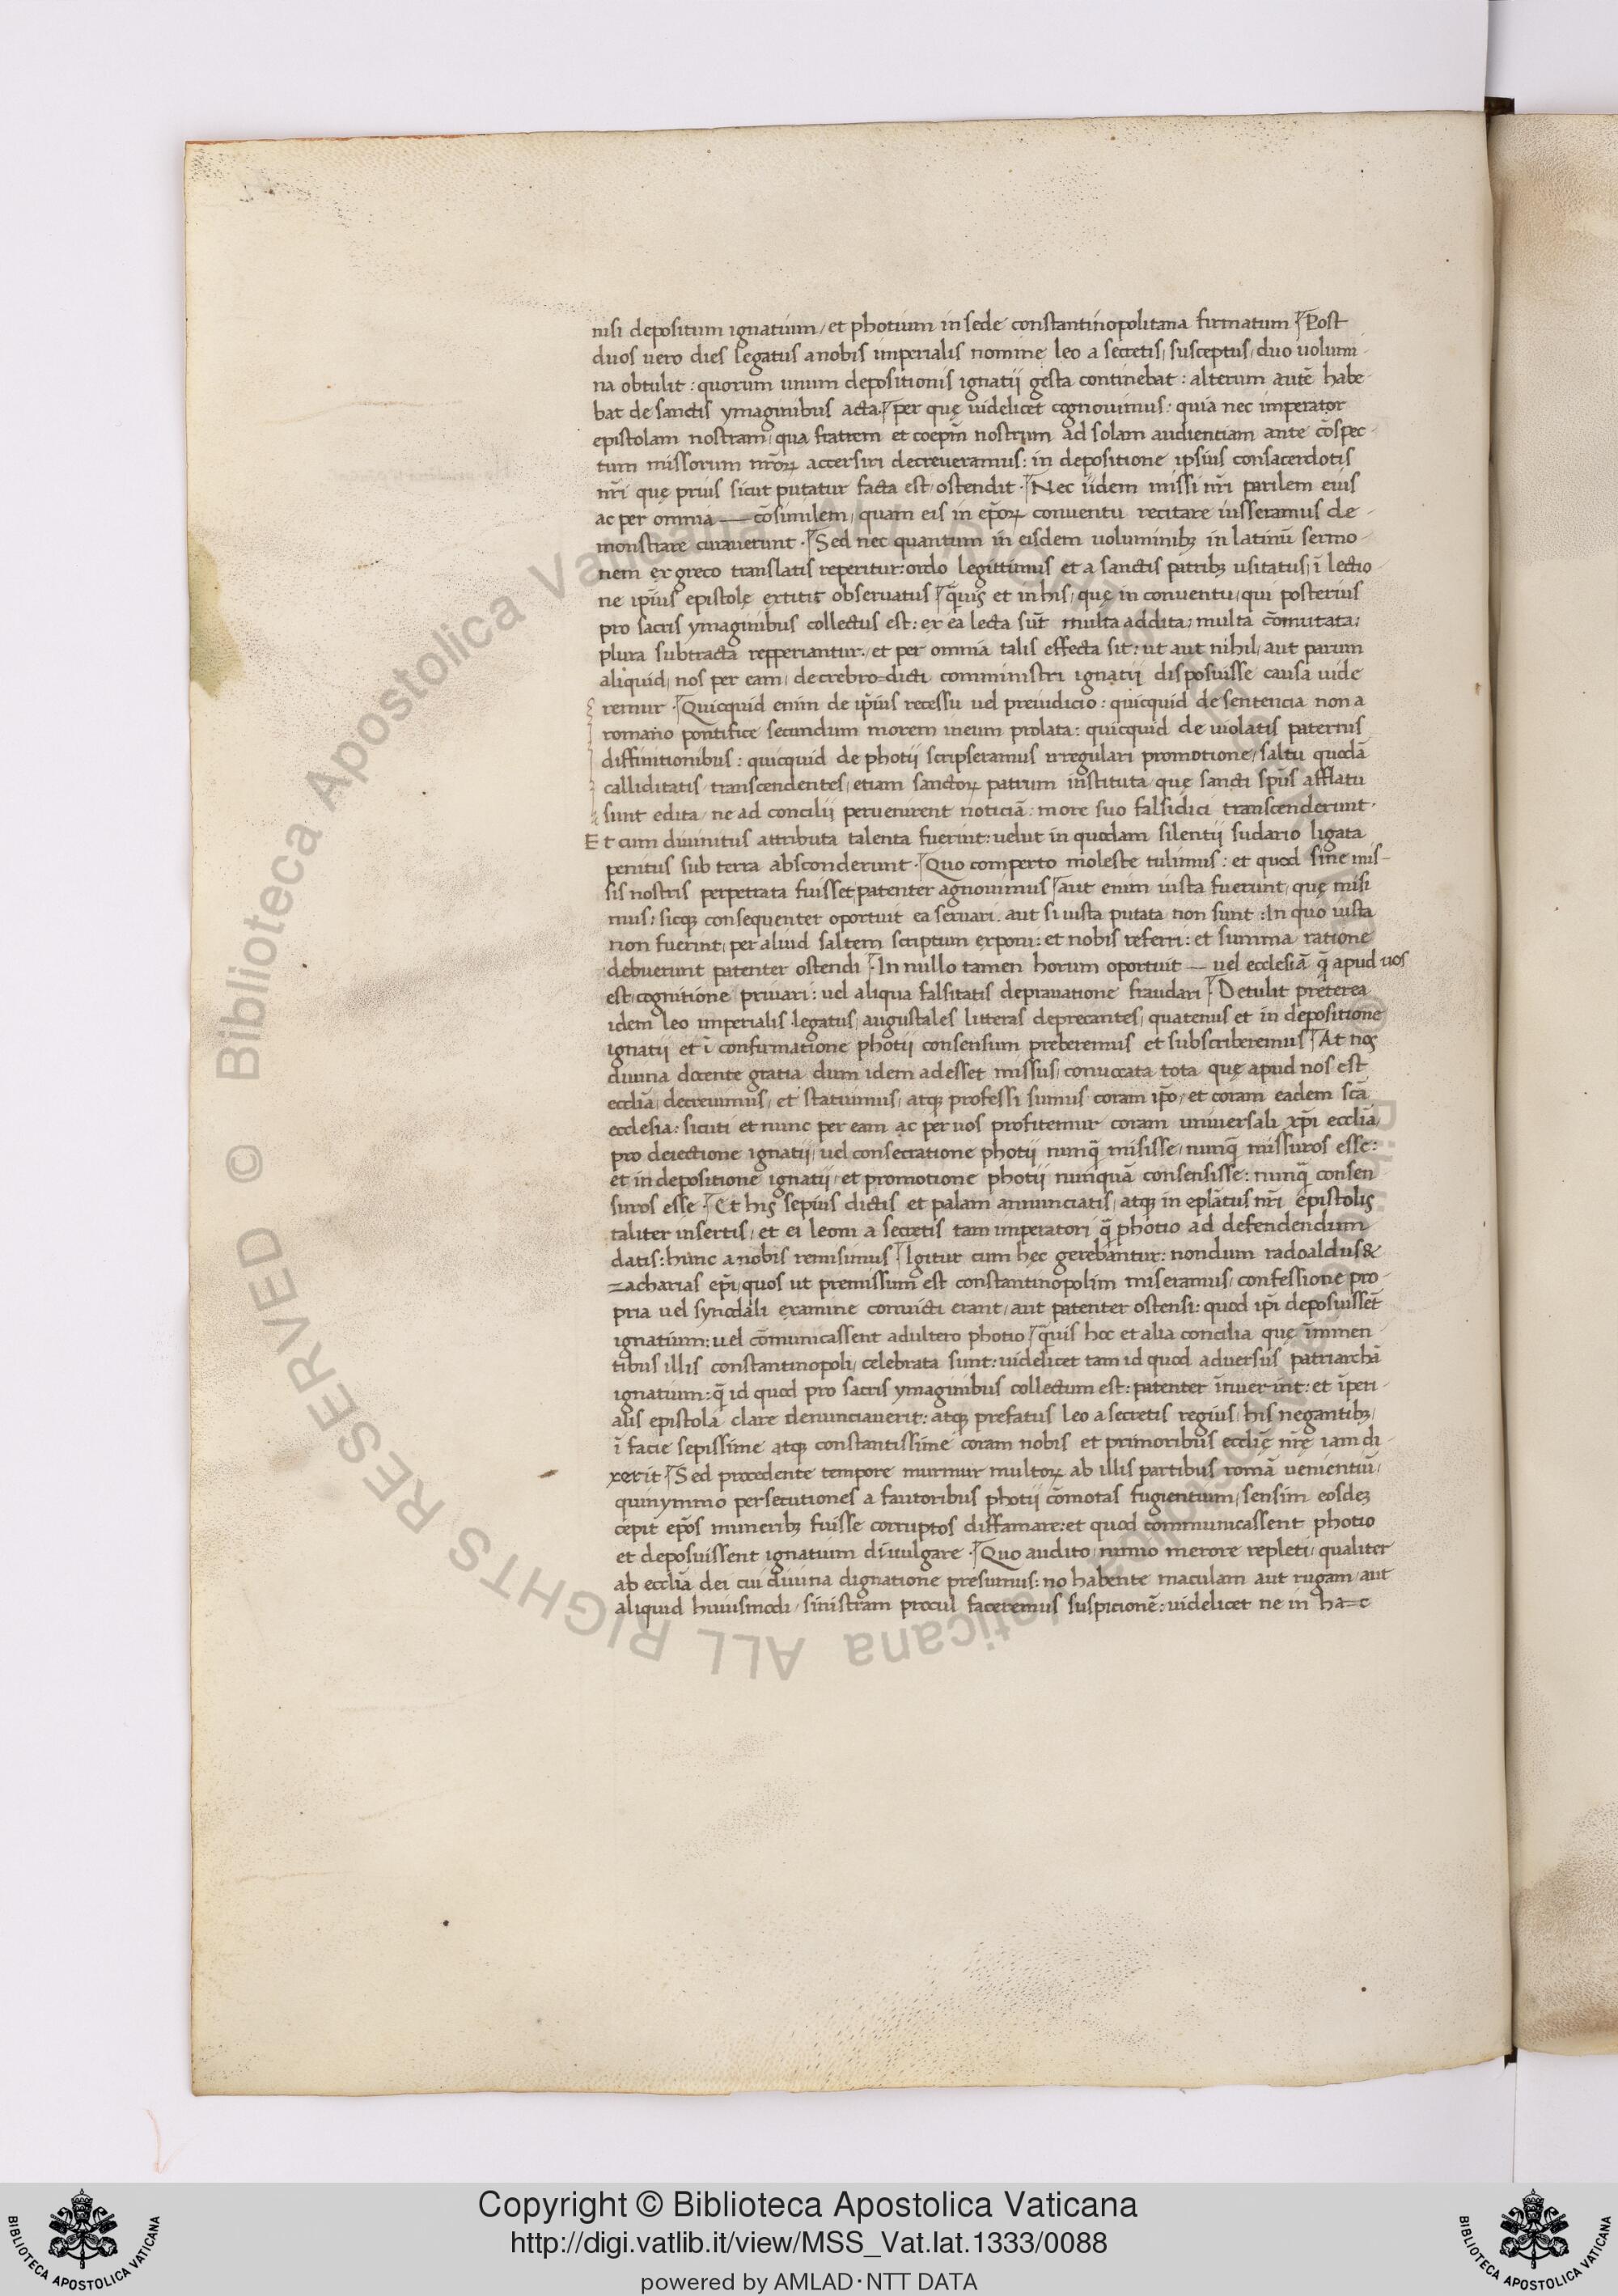 nisi depositum ignatium / et photium in sede constantinopolitana firmatum Post
duos uero dies legatus a nobis imperialis nomine leo a secretis / susceptus / duo uolumi-
na obtulit : quorum unum depositionis ignatij gesta continebat : alterum autē habe-
bat de sanctis ymaginibus acta. per quę uidelicet cognouimus : quia nec imperator
epistolam nostram / qua fratrem et coepm̄ nostrum ad solam audientiam ante cōspec-
tum missorum nr̄oꝝ accersiri decreueramus : in depositione ipsius consacerdotis
nr̄i quę prius sicut putatur facta est / ostendit . Nec iidem missi nr̄i parilem eius
ac per omnia — cōsimilem / quam eis in ep̄oꝝ conuentu recitare iusseramus de-
monstrare curauerunt . Sed nec quantum in eisdem uoluminibꝫ in latinū sermo-
nem ex greco translatis reperitur : ordo legittimus et a sanctis patribꝫ usitatus / ī lectio-
ne ip̄ius epistolę extitit obseruatus q̄uis et in his / quę in conuentu / qui posterius
pro sacris ymaginibus collectus est : ex ea lecta sūt multa addita : multa cōmutata :
plura subtracta repperiantur . et per omnia talis effecta sit : ut aut nihil / aut parum
aliquid / nos per eam / de crebro=dicti comministri ignatij disposuisse causa uide
remur . Quicquid enim de ip̄ius recessu uel preiudicio : quicquid de sentencia non a
romano pontifice secundum morem in eum prolata : quicquid de uiolatis paternis
diffinitionibus : quicquid de photij scripseramus irregulari promotione / saltu quodā
calliditatis transcendentes / etiam sanctoꝝ patrum instituta quę sancti sp̄us afflatu
sunt edita / ne ad concilij peruenirent noticiā : more suo falsidici transcenderunt .
Et cum diuinitus attributa talenta fuerint : uelut in quodam silentij sudario ligata
penitus sub terra absconderunt . Quo comperto moleste tulimus : et quod sine mis-
sis nostris perpetrata fuisset patenter agnouimus aut enim iusta fuerunt / quę misi
mus : sicqꝫ consequenter oportuit ea seruari . aut si iusta putata non sunt : In quo iusta
non fuerint / per aliud saltem scriptum exponi : et nobis referri : et summa ratione
debuerunt patenter ostendi . In nullo tamen horum oportuit — uel ecclesiā q̄ apud uos
est / cognitione priuari : uel aliqua falsitatis deprauatione fraudari Detulit preterea
idem leo imperialis legatus / augustales litteras deprecantes / quatenus et in depositione
ignatij et ī confirmatione photij consensum preberemus et subscriberemus At nos
diuina docente gratia dum idem adesset missus / conuocata tota quę apud nos est
eccl̄ia / decreuimus / et statuimus / atqꝫ professi sumus coram ip̄o / et coram eadem sc̄a
ecclesia : sicuti et nunc per eam ac per uos profitemur coram uniuersali xp̄i eccl̄ia /
pro deiectione ignatij / uel consecratione photij nunq̄ misisse / nunq̄ missuros esse :
et in depositione ignatij / et promotione photij nunquā consensisse : nunq̄ consen
suros esse . Et his sepius dictis et palam annunciatis / atqꝫ in eplātus nr̄i epistolis
taliter insertis / et ei leoni a secretis tam imperatori q̄ photio ad defendendum
datis : hunc a nobis remisimus Igitur cum hęc gerebantur : nondum radoaldus &
zacharias ep̄i / quos ut premissum est constantinopolim miseramus / confessione pro-
pria uel synodali examine conuicti erant / aut patenter ostensi : quod ip̄i deposuissēt
ignatium : uel cōmunicassent adultero photio q̄uis hoc et alia concilia quę īmmen
tibus illis constantinopoli / celebrata sunt : uidelicet tam id quod aduersus patriarchā
ignatium : q̄ id quod pro sacris ymaginibus collectum est : patenter īnuerint : et īperi-
alis epistola clare denunciauerit : atqꝫ prefatus leo a secretis regius / his negantibꝫ /
ī facie sepissime atqꝫ constantissime coram nobis et primoribus eccl̄ię nr̄ę iam di-
xerit Sed procedente tempore murmur multoꝝ ab illis partibus romā uenientiū /
quinymmo persecutiones a fautoribus photij cōmotas fugientium / sensim eosdeꝫ
cepit ep̄os muneribꝫ fuisse corruptos diffamare : et quod communicassent photio
et deposuissent ignatium diuulgare . Quo audito / nimio merore repleti / qualiter
ab eccl̄ia dei cui diuina dignatione presumus : no habente maculam aut rugam / aut
aliquid huiusmodi / sinistram procul faceremus suspicionē : uidelicet ne in ha=c
Copyright © Biblioteca Apostolica Vaticana
http://digi.vatlib.it/view/MSS_Vat.lat.1333/0088
powered by AMLAD·NTT DATA
BIBLIOTECA APOSTOLICA VATICANA
BIBLIOTECA APOSTOLICA VATICANA
© Biblioteca Apostolica Vaticana ALL RIGHTS RESERVED